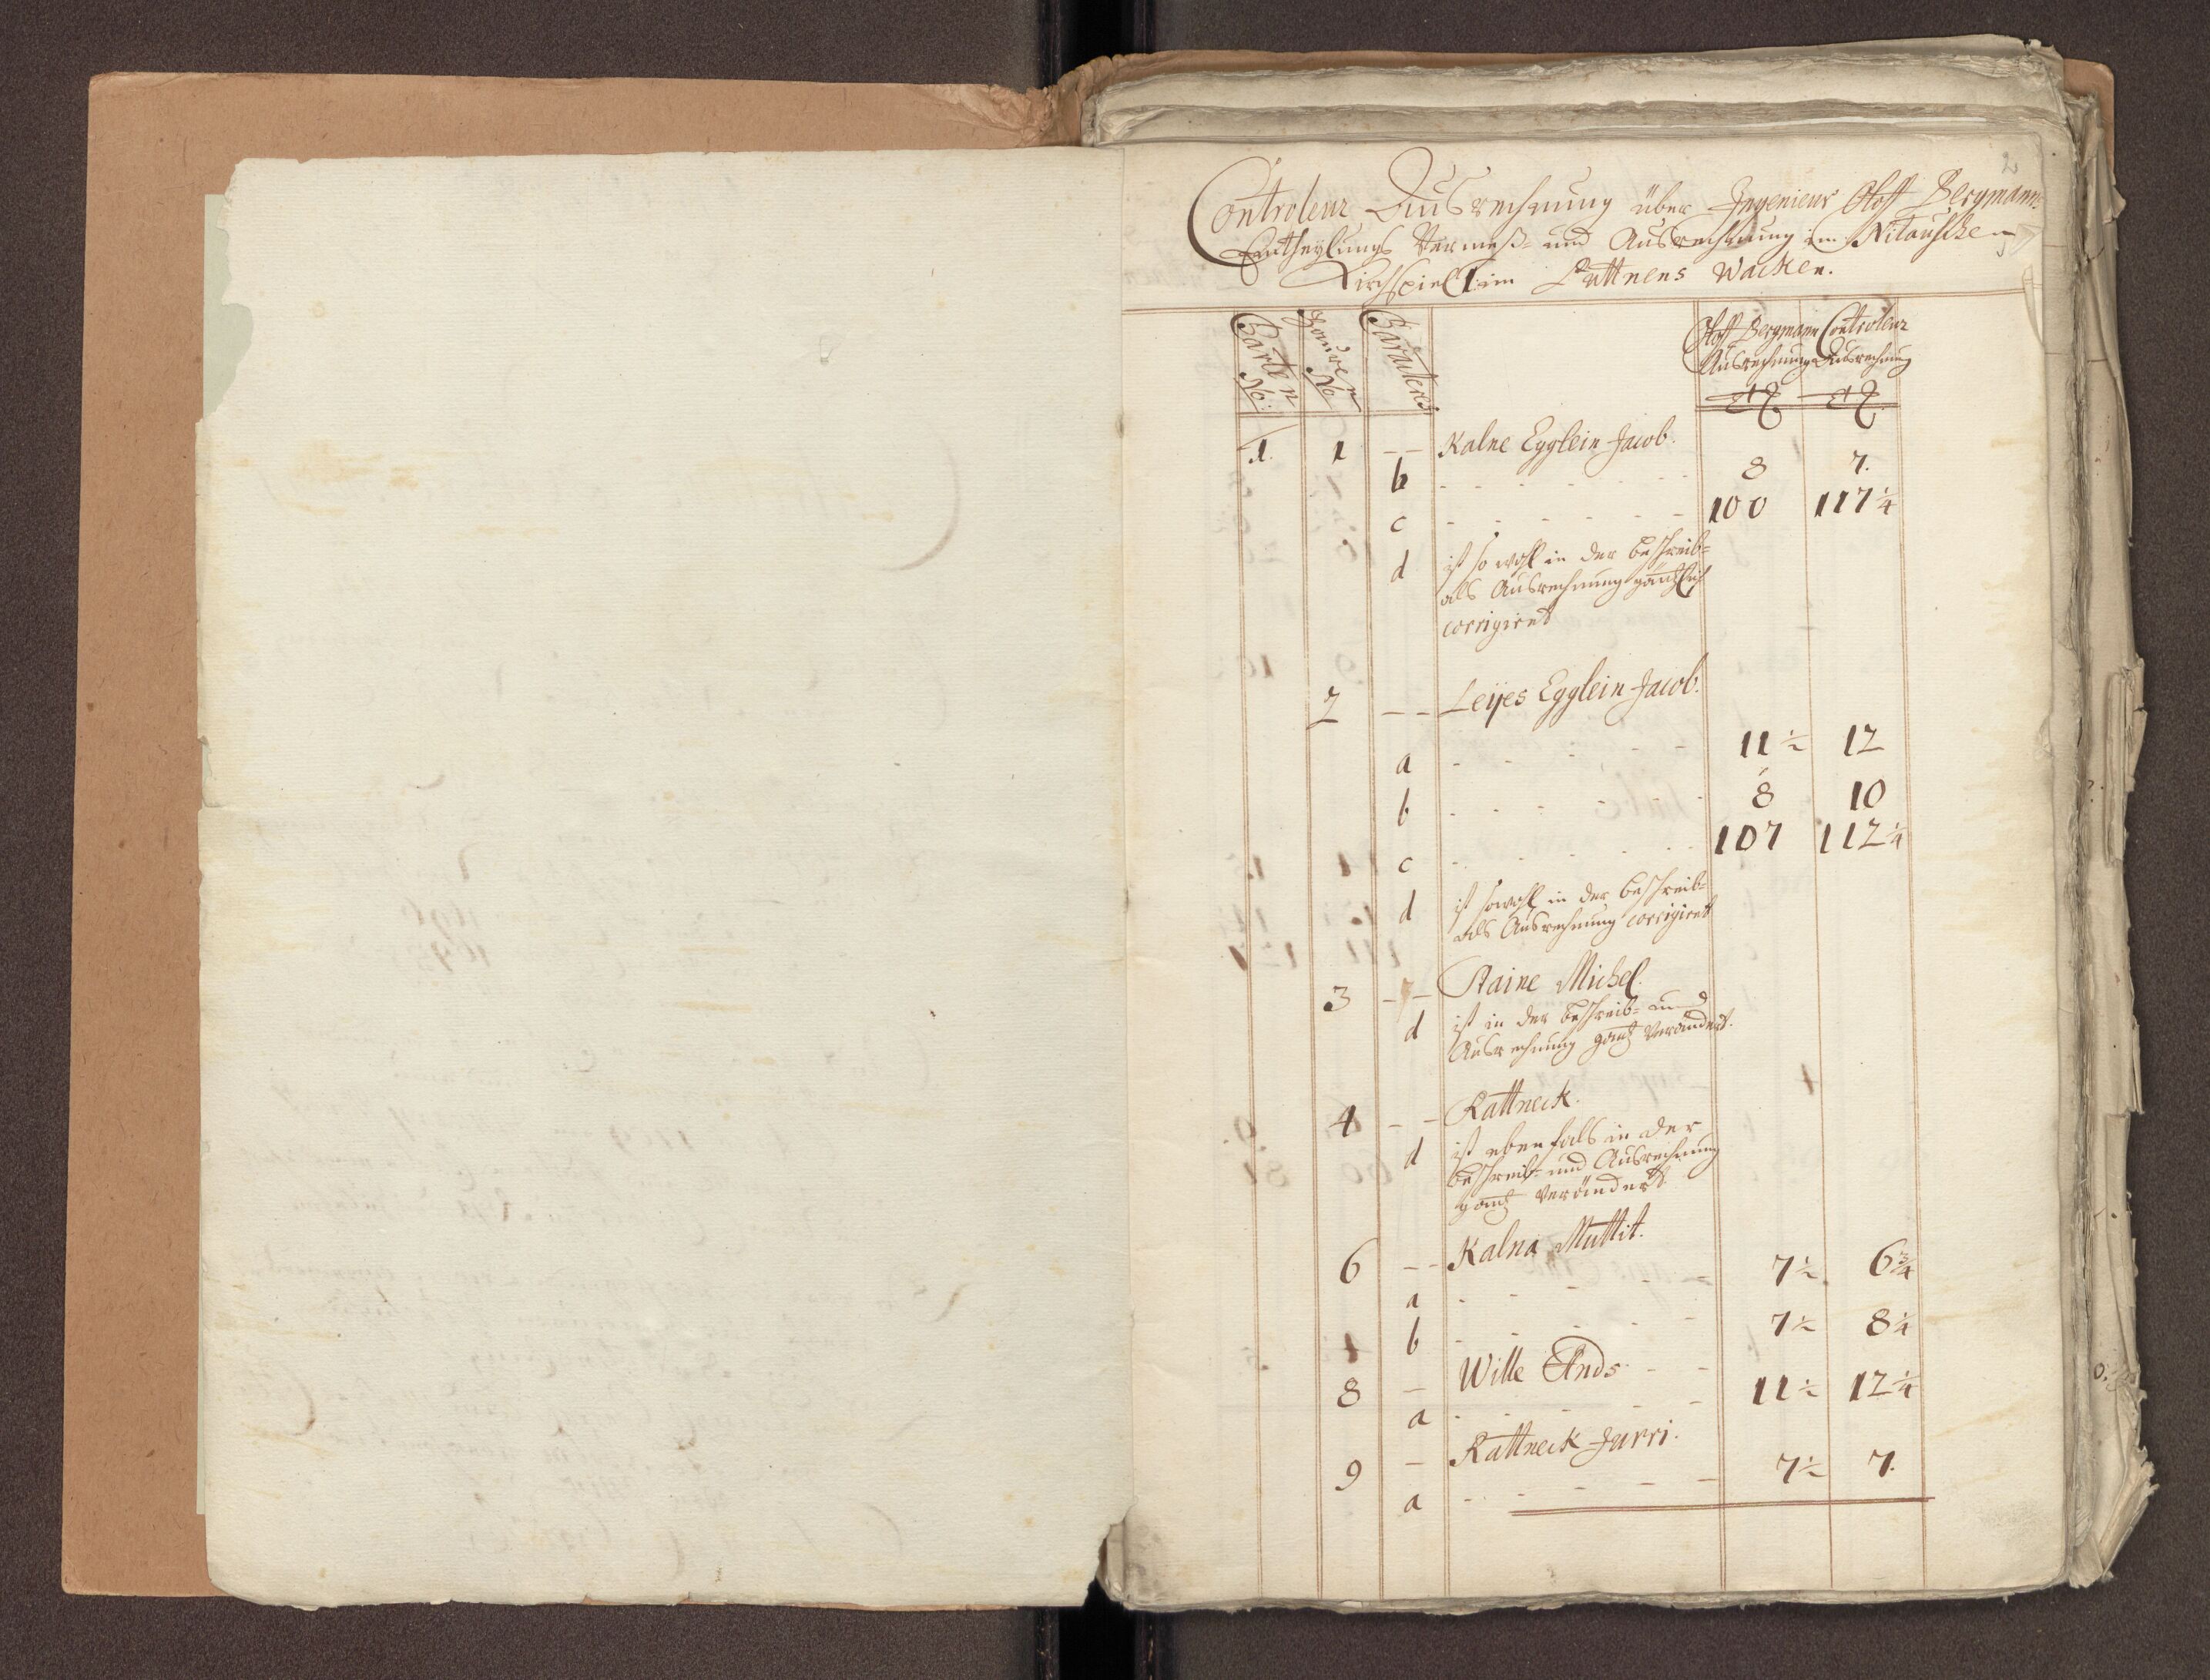 2
Controleur Ausrechnung über Ingenieur Oloff Bergmanns
Eintheylungs Vermeß- und Ausrechnung im Nitauschen
Kirchspiel im Wacken.
Carten No:
Bauren No
Caracteres
Oloff Bergmann Ausrechnung
Controleur Ausrechnung
1. 1 - - Kalne Egglein Jacob.
b - - - - - - 8 7.
c - - - - - - 100 117 1/4
d ist so wohl in der beschreib=
als Ausrechnung gäntzlich
corrigiret
2 - - Leÿes Egglein Jacob.
a - - - - - 11 1/2 12
b - - - - - 8 10
c - - - - - 107 112 1/4
d ist sowohl in der beschreib=
als Ausrechnung corrigiret
3 - - Raine Michel.
d ist in der beschreib= und
Ausrechnung gantz verändert.
4 - - Rattneck.
d ist ebenfals in der
beschreib= und Ausrechnung
gantz verändert
6 - - Kalna Muttit.
a - - - - - 7 1/2 6 3/4
b - - - - - 7 1/2 8 1/4
8 - Wille Ands - -
a - - - - - 11 1/2 12 1/4
9 - Rattneck Jurri.
a - - - - - 7 1/2 7.